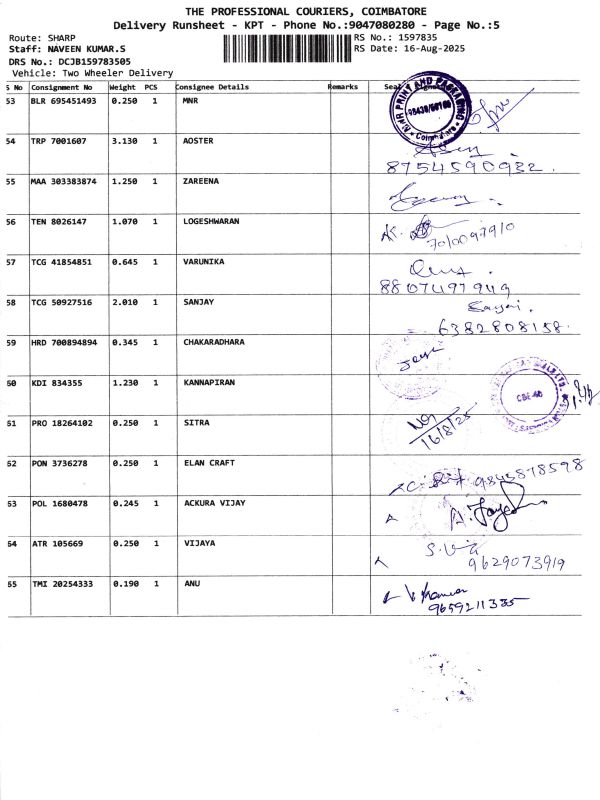 THE PROFESSIONAL COURIERS, COIMBATORE
Delivery Runsheet - KPT - Phone No.:9047080280 - Page No.:5
Route: SHARP
RS No.: 1597835
Staff: NAVEEN KUMAR.S
RS Date: 16-Aug-2025
DRS No.: DCJB159783505
Vehicle: Two Wheeler Delivery
S No Consignment No Weight PCS Consignee Details Remarks
53 BLR 695451493 0.250 1 MNR
54 TRP 7001607 3.130 1 AOSTER
8754590932.
55 MAA 303383874 1.250 1 ZAREENA
56 TEN 8026147 1.070 1 LOGESHWARAN
7010097910
57 TCG 41854851 0.645 1 VARUNIKA
8807497949
58 TCG 50927516 2.010 1 SANJAY
6382808158.
59 HRD 700894894 0.345 1 CHAKARADHARA
60 KDI 834355 1.230 1 KANNAPIRAN
61 PRO 18264102 0.250 1 SITRA
16/8/25
62 PON 3736278 0.250 1 ELAN CRAFT
9843878598
63 POL 1680478 0.245 1 ACKURA VIJAY
64 ATR 105669 0.250 1 VIJAYA
9629073919
65 TMI 20254333 0.190 1 ANU
9659211335